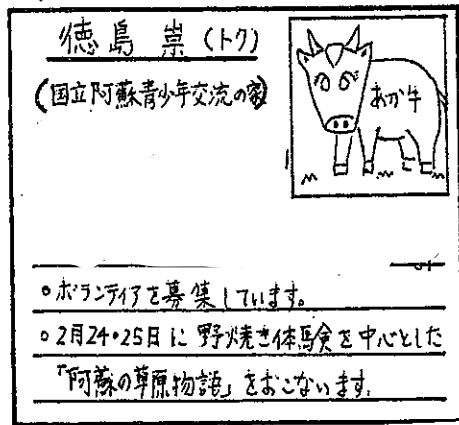 徳島 崇(トク)
(国立阿蘇青少年交流の家)
あか牛
○ボランティアを募集しています。
○2月24・25日に野焼き体験を中心とした
「阿蘇の草原物語」をおこないます。